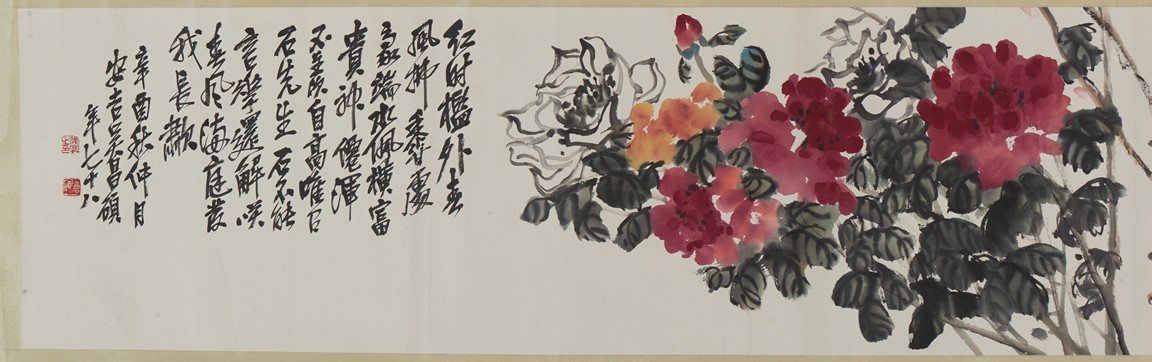 紅時檻外春
風拂香處
豪端水佩橫富
貴神僊渾
不羨自高唯有
石先生石不能
言華還解咲
春風滿庭發
我長歎
辛酉秋仲月
安吉吳昌碩
年七十八